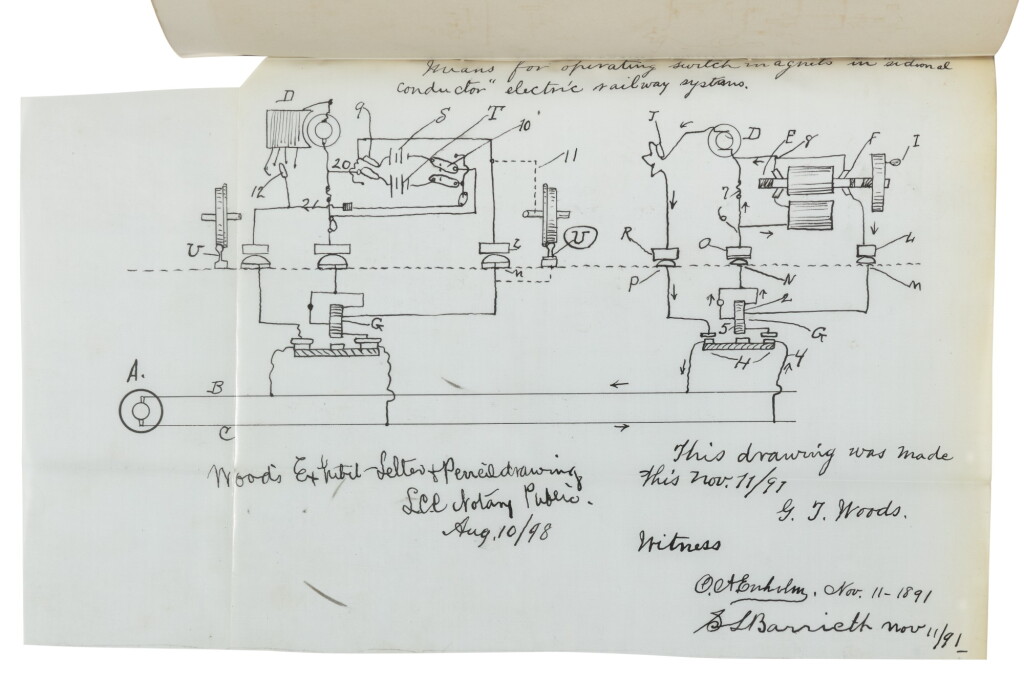 Means for operating switch magnets in
conductor" electric railway systems.
D 9 S T 10'
20
12
21
11
U
2
n
U
G
A.
B
C
J D E 8 F I
7
6
R O L
P N m
2
5 G
H 4
Woods Exhibit Letter & Pencil drawing
Notary Public.
Aug. 10/98
This drawing was made
this Nov. 11/91
G. T. Woods.
Witness
Nov. 11-1891
Nov 11/91